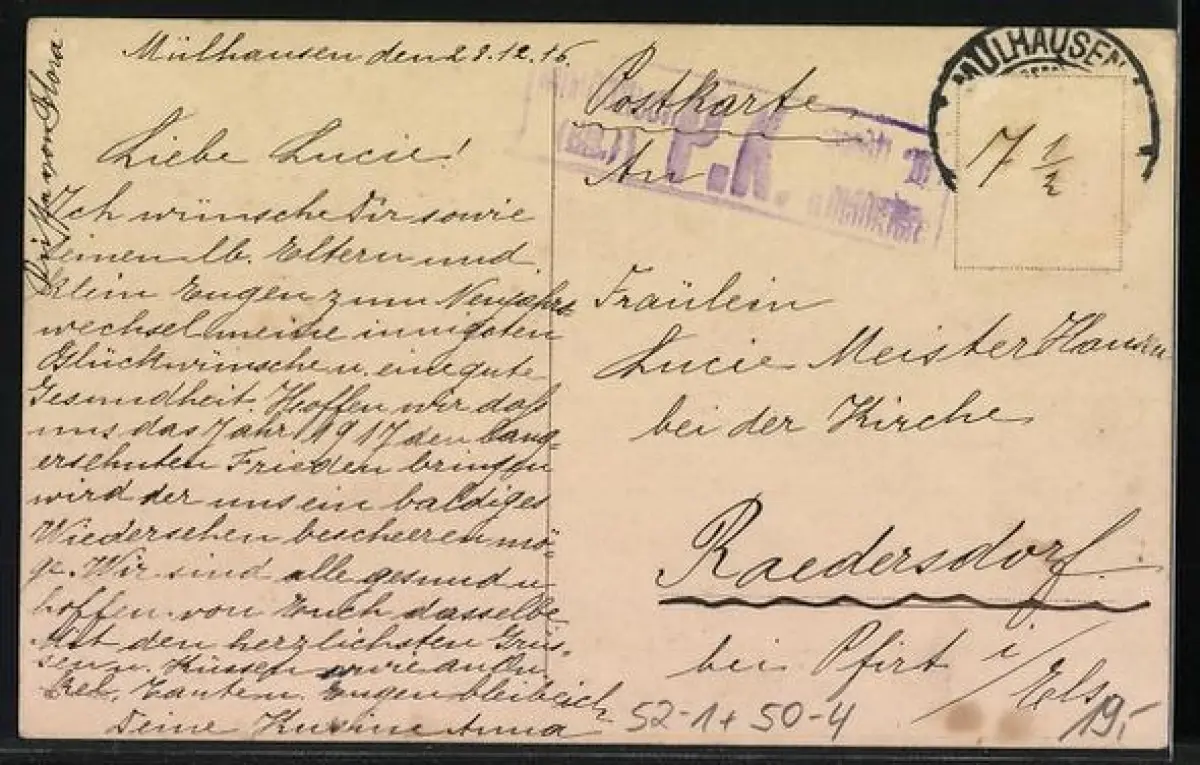 Mülhausen den 28.12.16.
Liebe Lucie!
Ich wünsche Dir sowie
Deinen lb. Eltern und
Klein Eugen zum Neujahrs
wechsel meine innigsten
Glückwünsche u. eine gute
Gesundheit. Hoffen wir daß
uns das Jahr 1917 den lang-
ersehnten Frieden bringen
wird der uns ein baldiges
Wiedersehen bescheeren mö-
ge. Wir sind alle gesund u.
hoffen von Euch dasselbe
Mit den herzlichsten Grüs-
sen u. Küssen sowie an
Tanten Eugen bleibe ich
Deine Kusine Anna
von Flora
Postkarte
An
Fräulein
Lucie Meister
bei der Kirche
Raedersdorf
bei Pfirt i/
Els
MÜLHAUSEN
7 1/2
P.K.
52-1+50-4
19,-